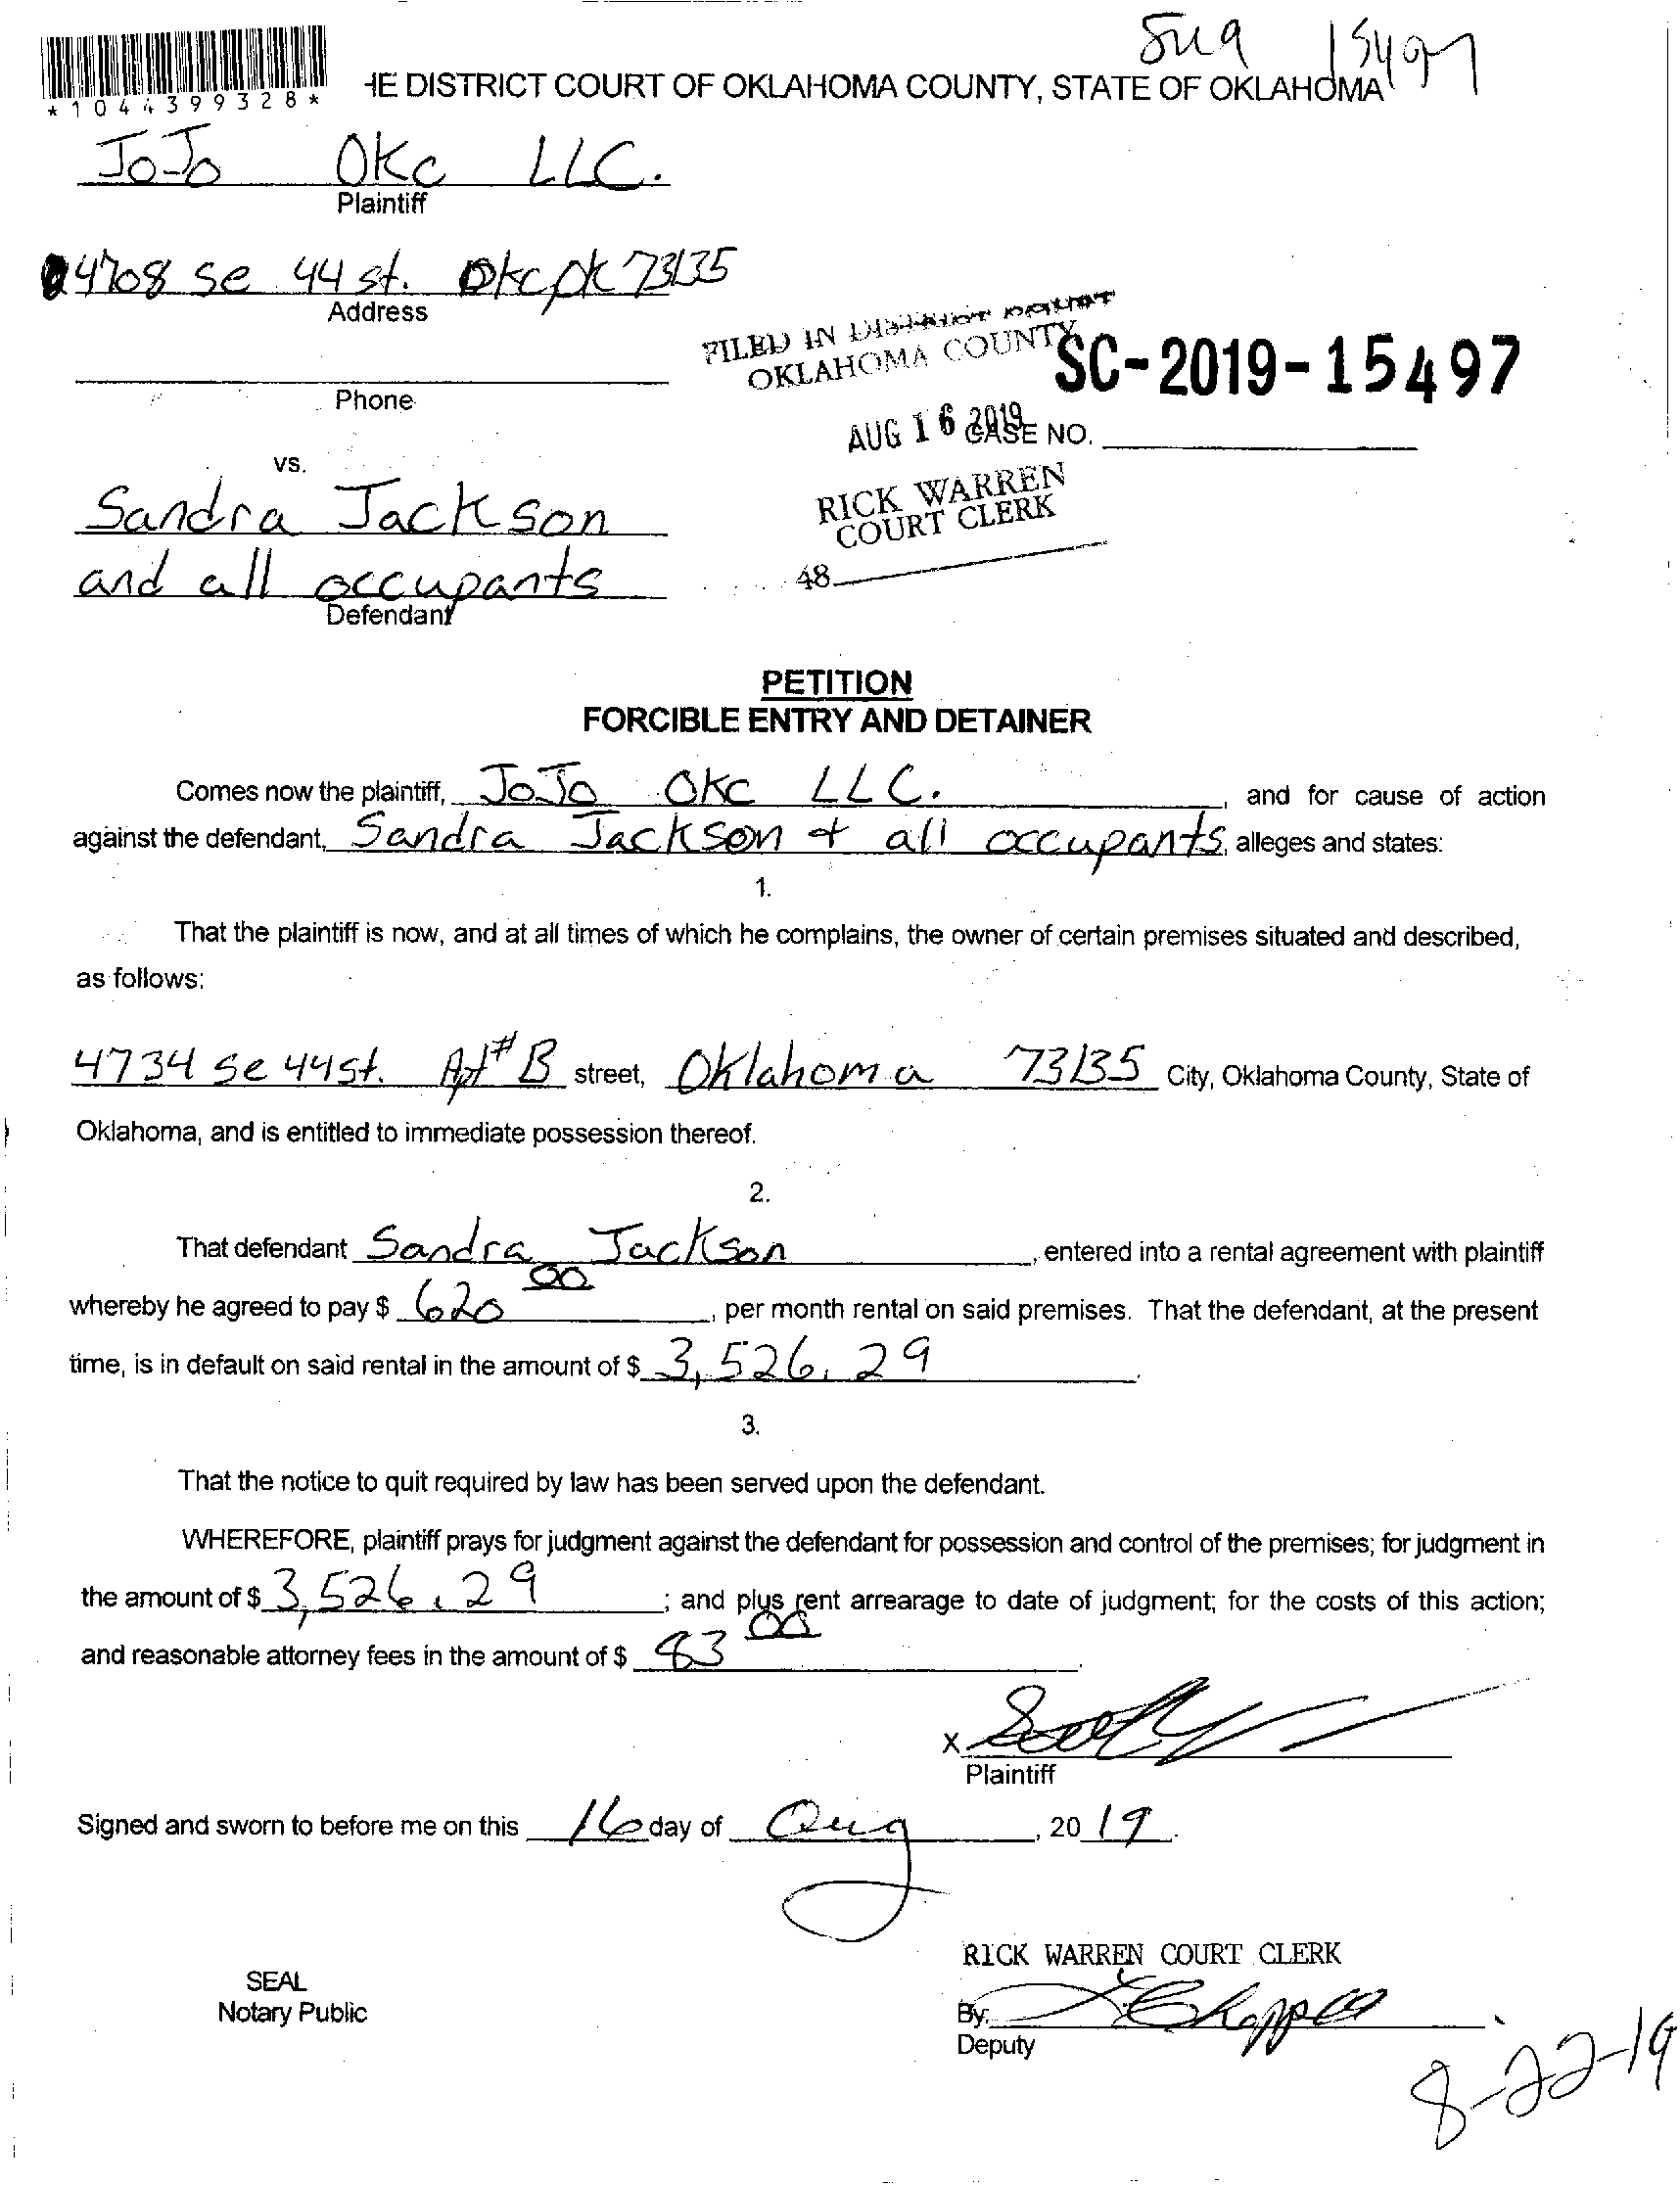 15497
*1044399328*
HE DISTRICT COURT OF OKLAHOMA COUNTY, STATE OF OKLAHOMA
JoJo OKC LLC.
Plaintiff
4708 se 44 st. OKC OK 73135
Address
FILED IN DISTRICT COURT
OKLAHOMA COUNTY
SC-2019-15497
Phone
AUG 16 2019
CASE NO.
vs.
RICK WARREN
COURT CLERK
Sandra Jackson
and all occupants
48
Defendant
PETITION
FORCIBLE ENTRY AND DETAINER
Comes now the plaintiff, JoJo OKC LLC. , and for cause of action
against the defendant, Sandra Jackson + all occupants, alleges and states:
1.
That the plaintiff is now, and at all times of which he complains, the owner of certain premises situated and described,
as follows:
4734 se 44st. Apt #B street, Oklahoma 73135 City, Oklahoma County, State of
Oklahoma, and is entitled to immediate possession thereof.
2.
That defendant Sandra Jackson , entered into a rental agreement with plaintiff
whereby he agreed to pay $ 620 00 , per month rental on said premises. That the defendant, at the present
time, is in default on said rental in the amount of $ 3,526.29 .
3.
That the notice to quit required by law has been served upon the defendant.
WHEREFORE, plaintiff prays for judgment against the defendant for possession and control of the premises; for judgment in
the amount of $ 3,526.29 ; and plus rent arrearage to date of judgment; for the costs of this action;
and reasonable attorney fees in the amount of $ 83 00 .
X
Plaintiff
Signed and sworn to before me on this 16 day of Aug , 20 19 .
RICK WARREN COURT CLERK
SEAL
Notary Public
By:
Deputy
8-22-19